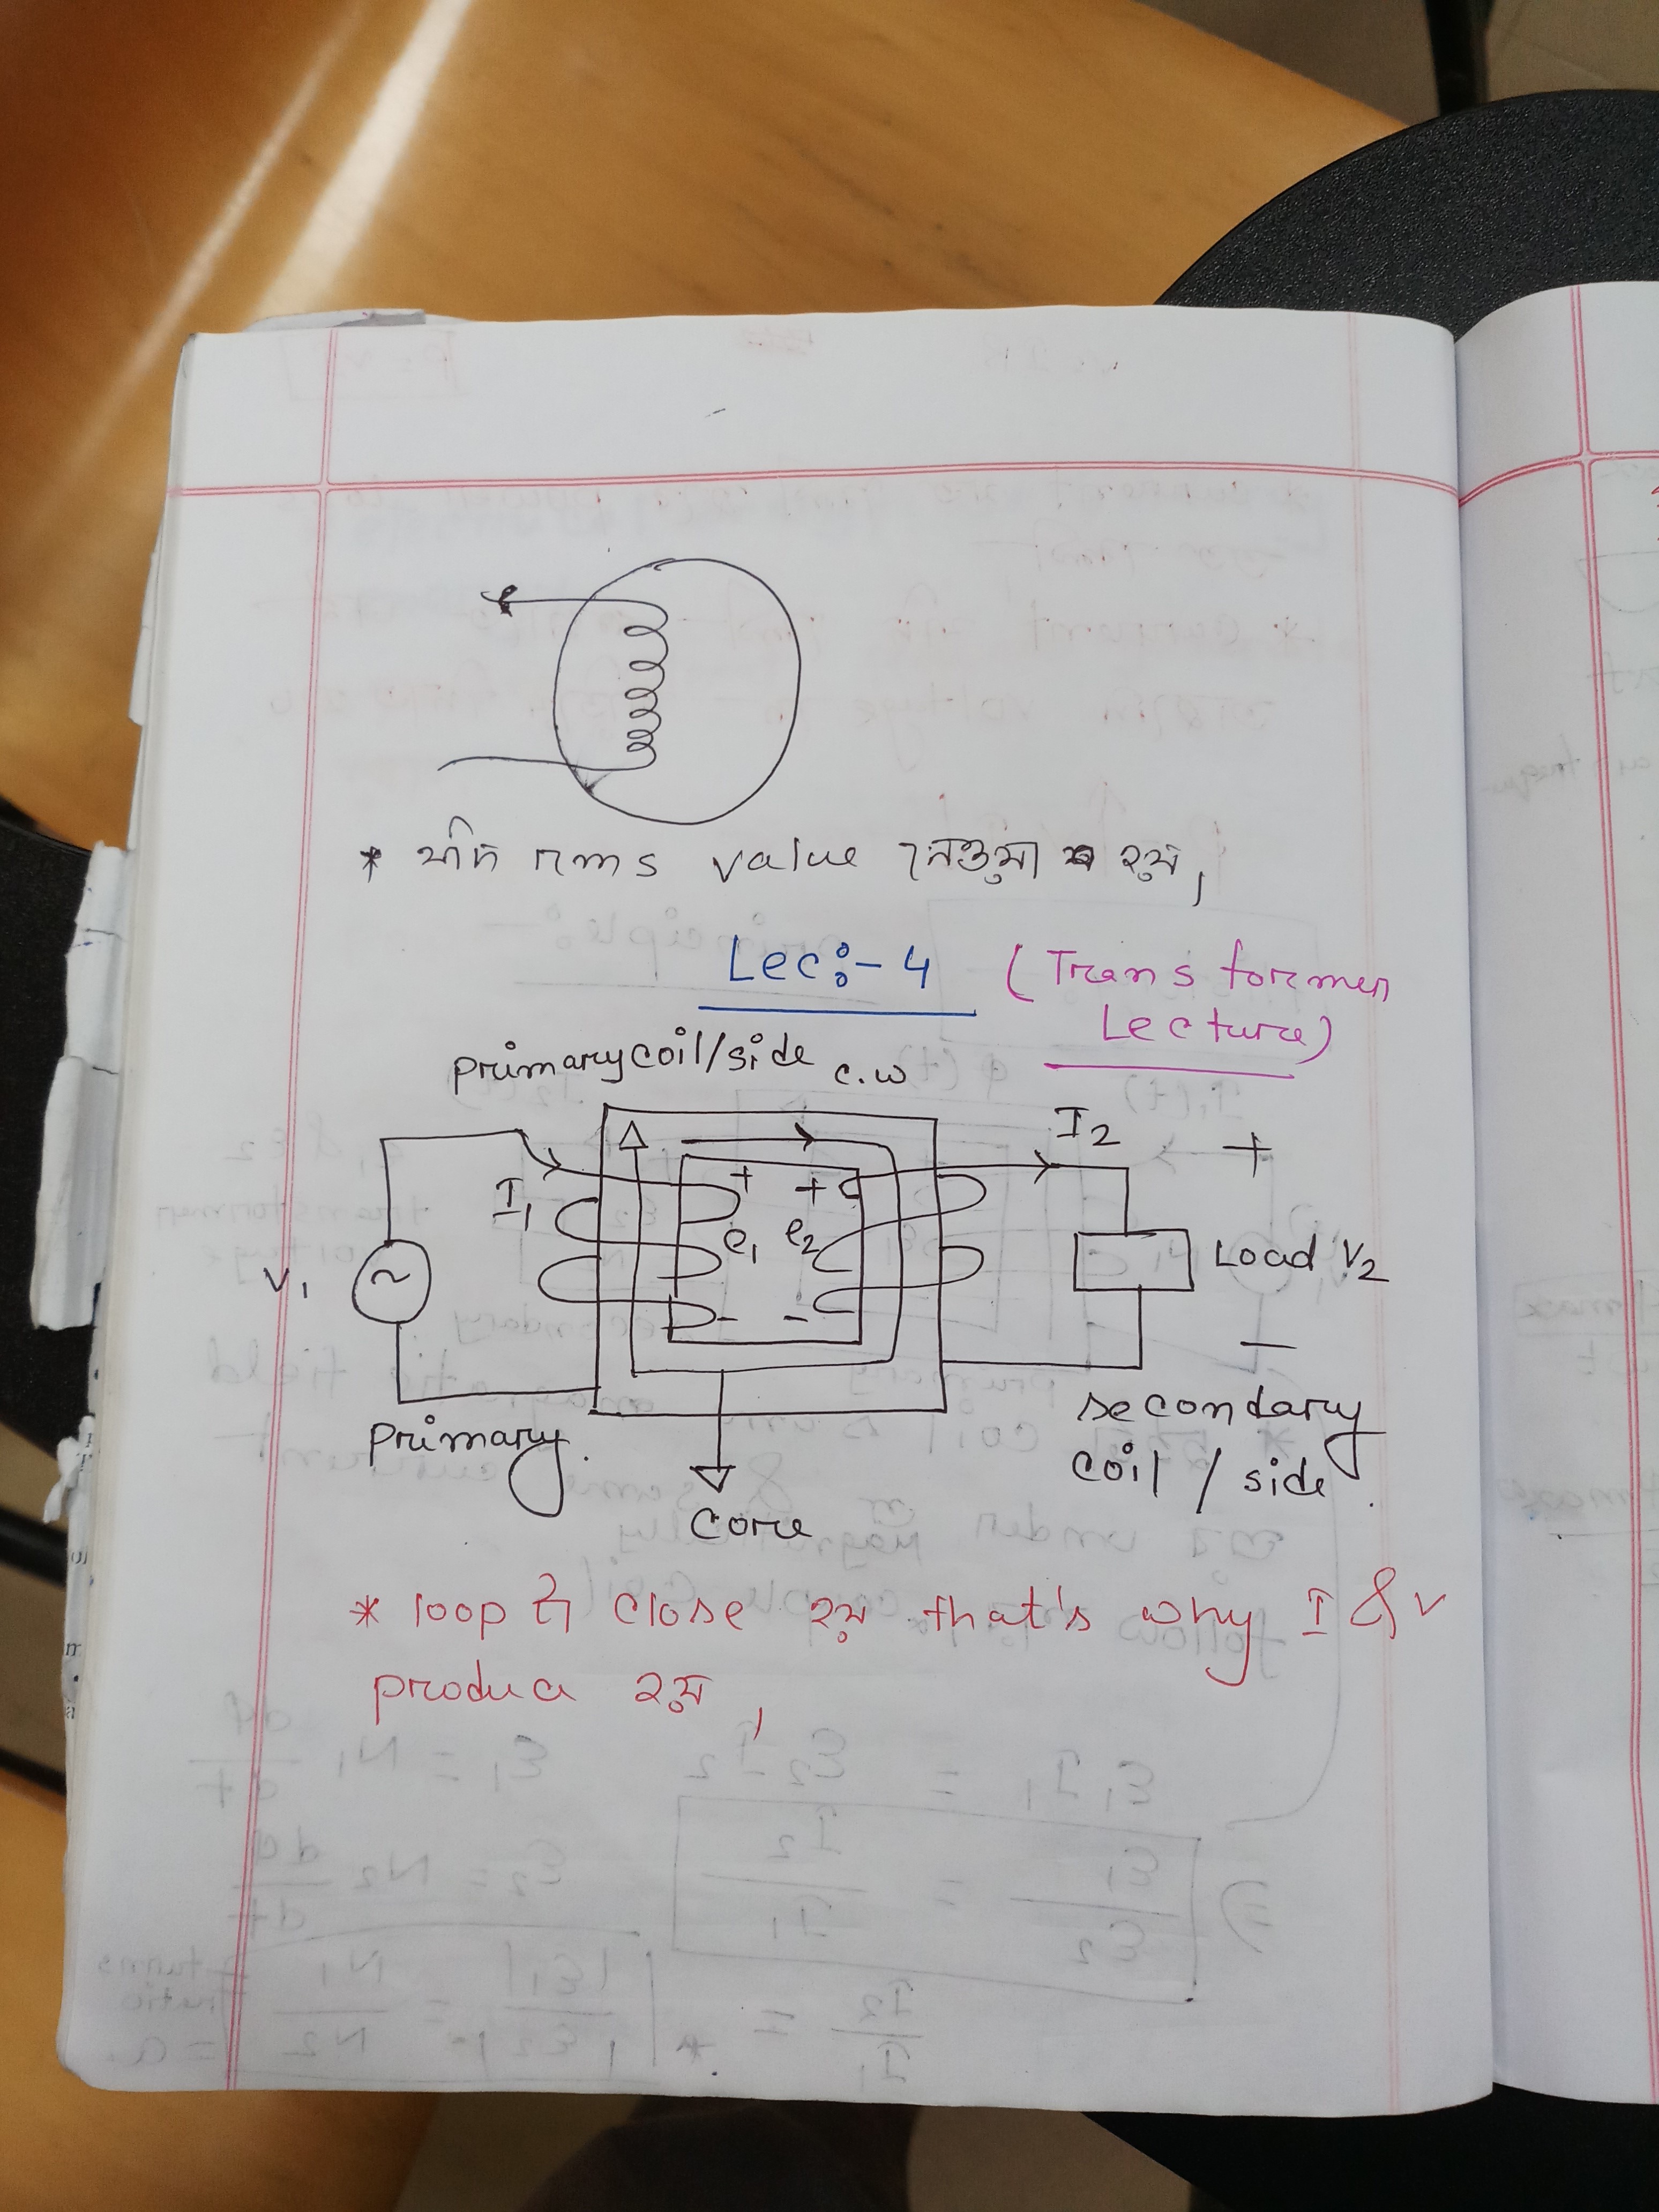 * যদি rms value নেওয়া হয়,
Lec:- 4 (Transformer
Lecture)
primary coil/side c.w
I₁
I₂
+
+ +
e₁ e₂
V₁
~
Load V₂
- -
-
primary.
secondary
coil / side.
core
* loop টা close হয় that's why I & V
produce হয়,